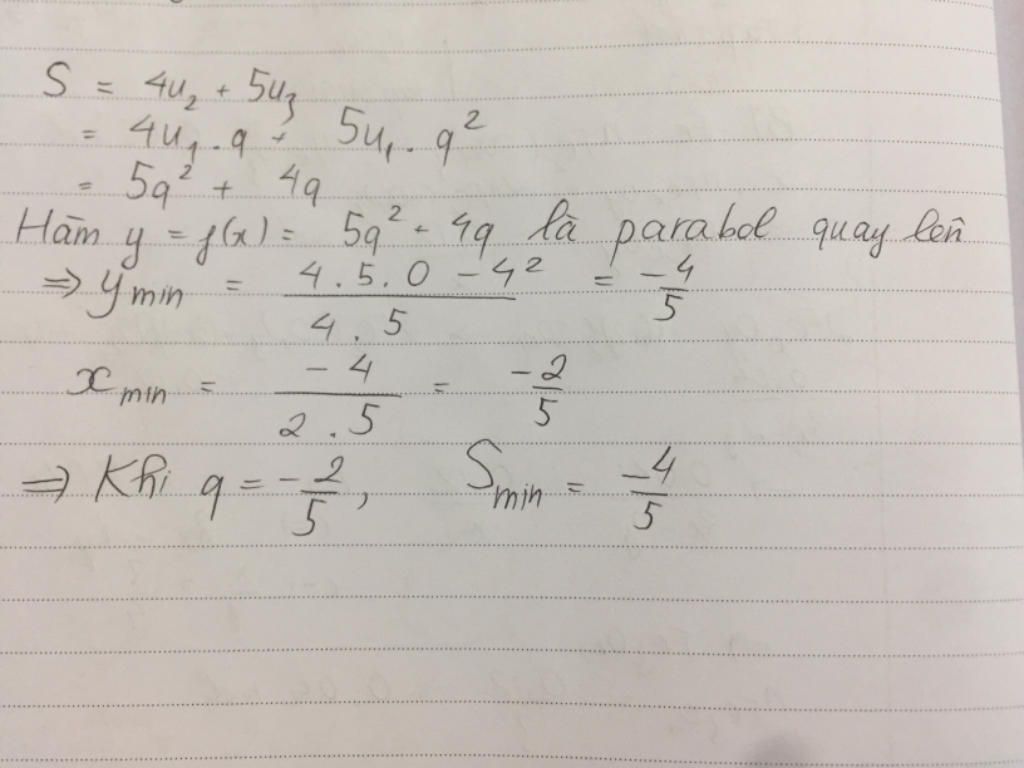 S = 4u₂ + 5u₃
= 4u₁ . q + 5u₁ . q²
= 5q² + 4q
Hàm y = f(x) = 5q² + 4q là parabol quay lên
⇒ y min = (4 . 5 . 0 - 4²) / (4 . 5) = -4/5
x min = -4 / (2 . 5) = -2/5
⇒ Khi q = -2/5, S min = -4/5